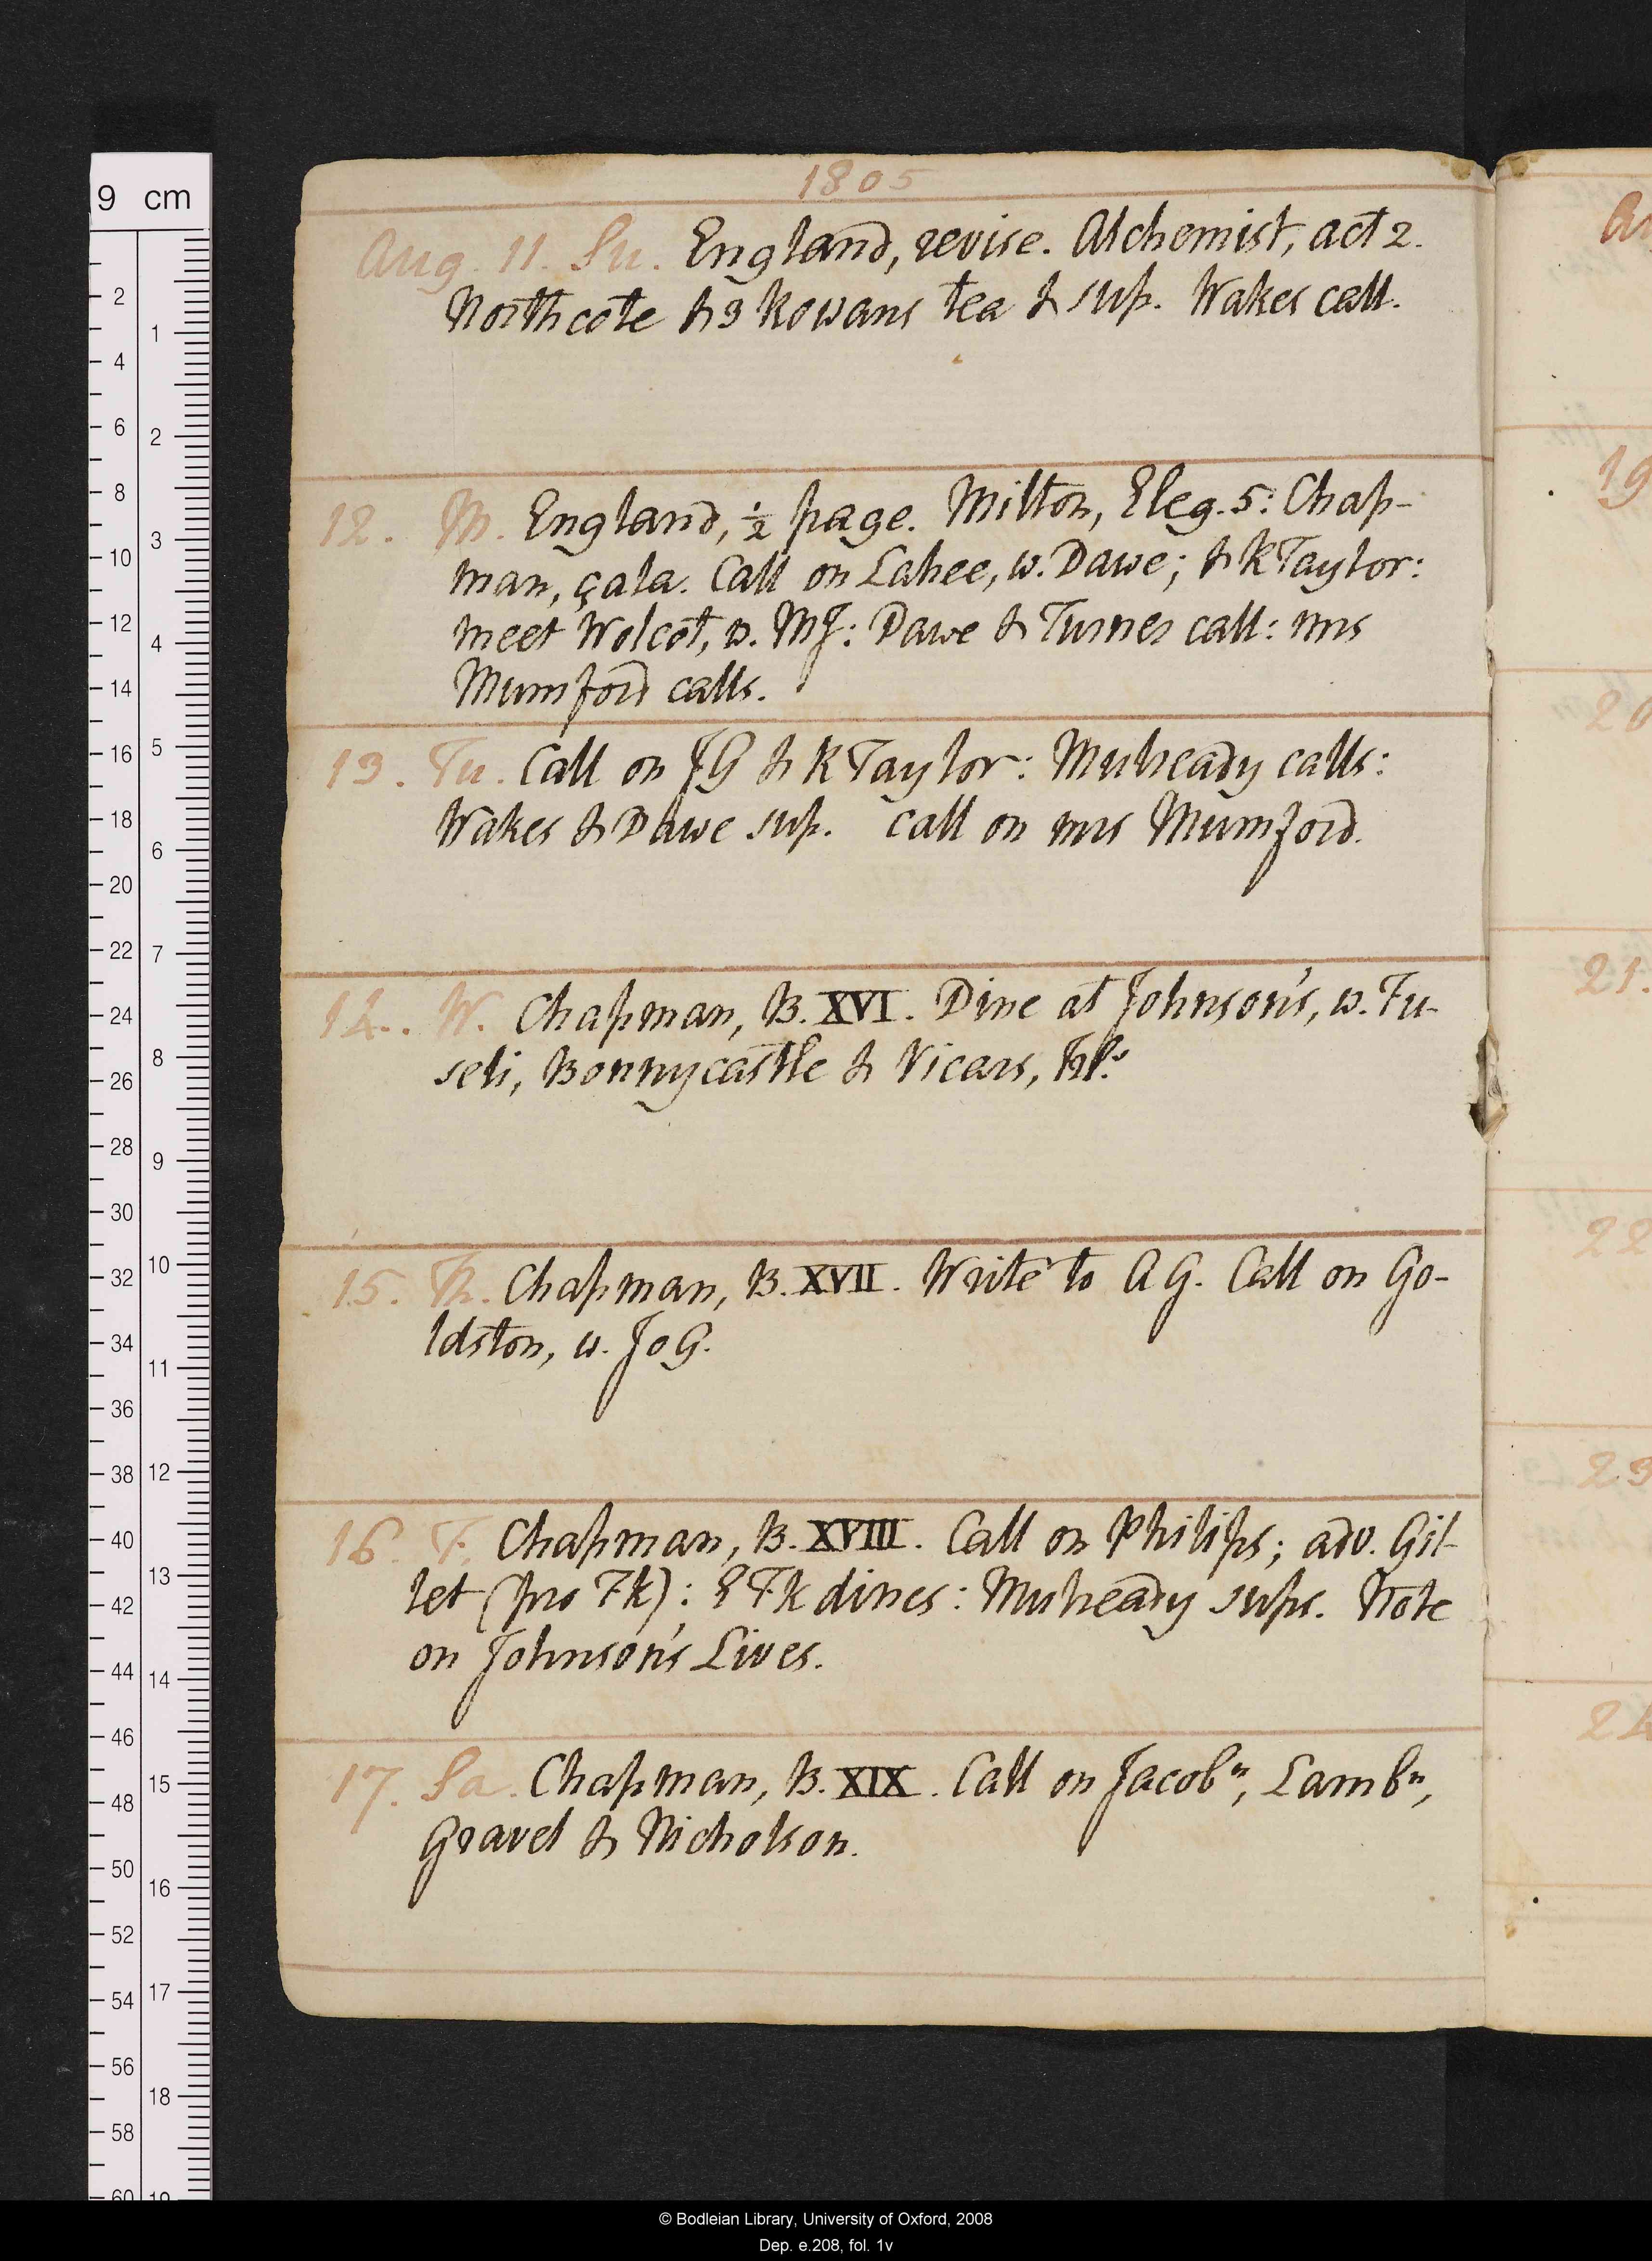 1805
Aug. 11. Su. England, revise. Alchemist, act 2.
Northcote & 3 Rowans tea & sup. Wakes call.
12. M. England, ½ page. Milton, Eleg. 5: Chap-
man, çala. Call on Lahee, w. Dawe; & R Taylor:
meet Wolcot, w. MJ: Dawe & Turner call: mrs
Mumford calls.
13. Tu. Call on JG & R Taylor: Mulready calls:
Wakes & Dawe sup. call on mrs Mumford.
14. W. Chapman, B. XVI. Dine at Johnson's, w. Fu-
seli, Bonnycastle & Vicars,
15. Th. Chapman, B. XVII. Write to AG. Call on Go-
ldston, w. JoG.
16. F. Chapman, B. XVIII. Call on Philips; adv. Gil-
let (pro Fk): E Fk dines: Mulready sups. Note
on Johnson's Lives.
17. Sa. Chapman, B. XIX. Call on Jacobⁿ, Lambⁿ,
Gravel & Nicholson.
9 cm
19
20
21.
22
23
© Bodleian Library, University of Oxford, 2008
Dep. e.208, fol. 1v